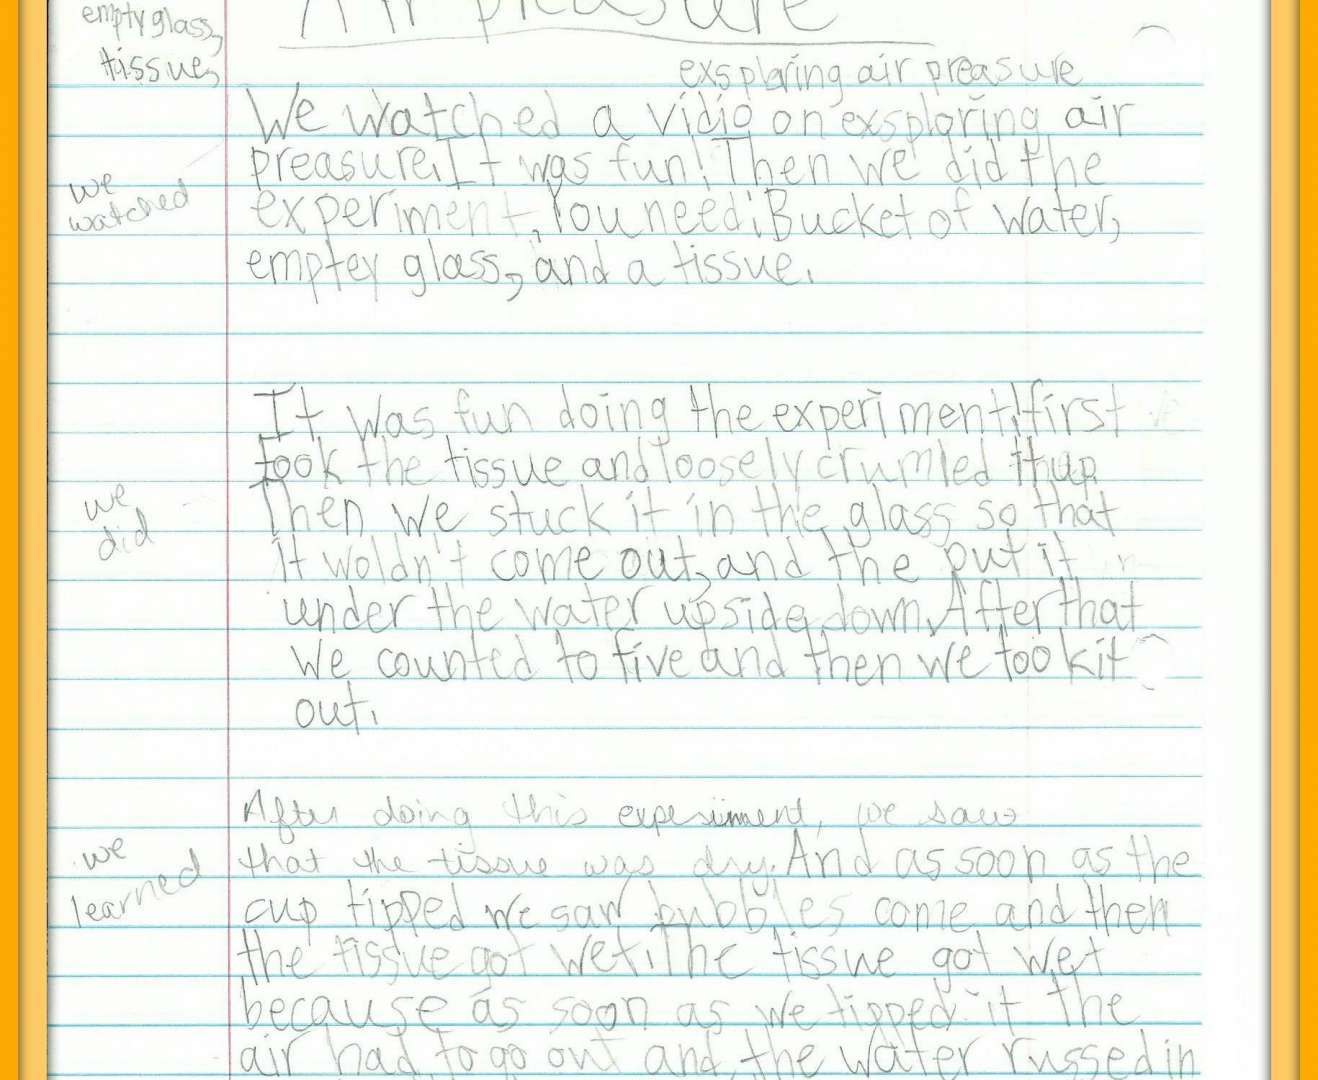 empty glass,
tissue,
Air preasure
exsploring air preasure
We watched a vidio on exsploring air
preasure. It was fun! Then we did the
we
watched
experiment, You need: Bucket of water,
emptey glass, and a tissue.
It was fun doing the experiment! first
took the tissue and loosely crumled it up.
we
did
Then we stuck it in the glass so that
it woldn't come out, and the put it
under the water upside down. After that
we counted to five and then we took it
out.
After doing this experiment, we saw
we
learned
that the tissue was dry. And as soon as the
cup tipped we saw bubbles come and then
the tissue got wet. The tissue got wet
because as soon as we tipped it the
air had to go out and the water russed in